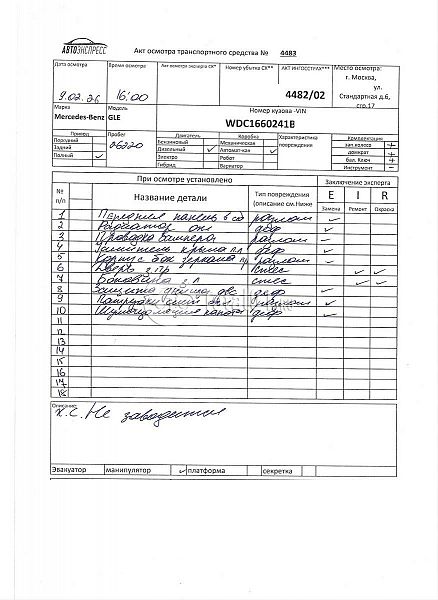 АВТОЭКСПРЕСС
Акт осмотра транспортного средства № 4483
Дата осмотра Время осмотра Акт осмотра эксперта СК* Номер убытка СК** АКТ ИНГОССТРАХ*** Место осмотра:
г. Москва,
ул.
Стандартная д.6,
стр.17
9.02.26 16:00 4482/02
Марка Модель Номер кузова -VIN
Mercedes-Benz GLE WDC1660241B
Привод Пробег Двигатель Коробка Характеристика повреждения Комплектация
Передний Бензиновый Механическая зап.колесо +
Задний Дизельный ✓ Автомат-кая ✓ домкрат +
Полный ✓ Электро Робот бал. Ключ +
Гибрид Вариатор Инструмент -
При осмотре установлено Заключение эксперта
№ п/п Название детали Тип повреждения (описание см.Ниже E I R
Замена Ремонт Окраска
1 Передняя панель в сб разлом ✓
2 Радиатор деф ✓
3 Проводка бампера разлом ✓
4 крыла пл деф ✓
5 Корпус бок зеркала п разлом ✓
6 Дверь ✓ ✓
7 Боковина ✓ ✓
8 Защита двс деф ✓
9 Патрубки ✓
10 Шумоизоляция капота деф ✓
11
12
13
14
15
16
17
18
Описание:
х.с. Не заводится
Эвакуатор манипулятор ✓ платформа секретка